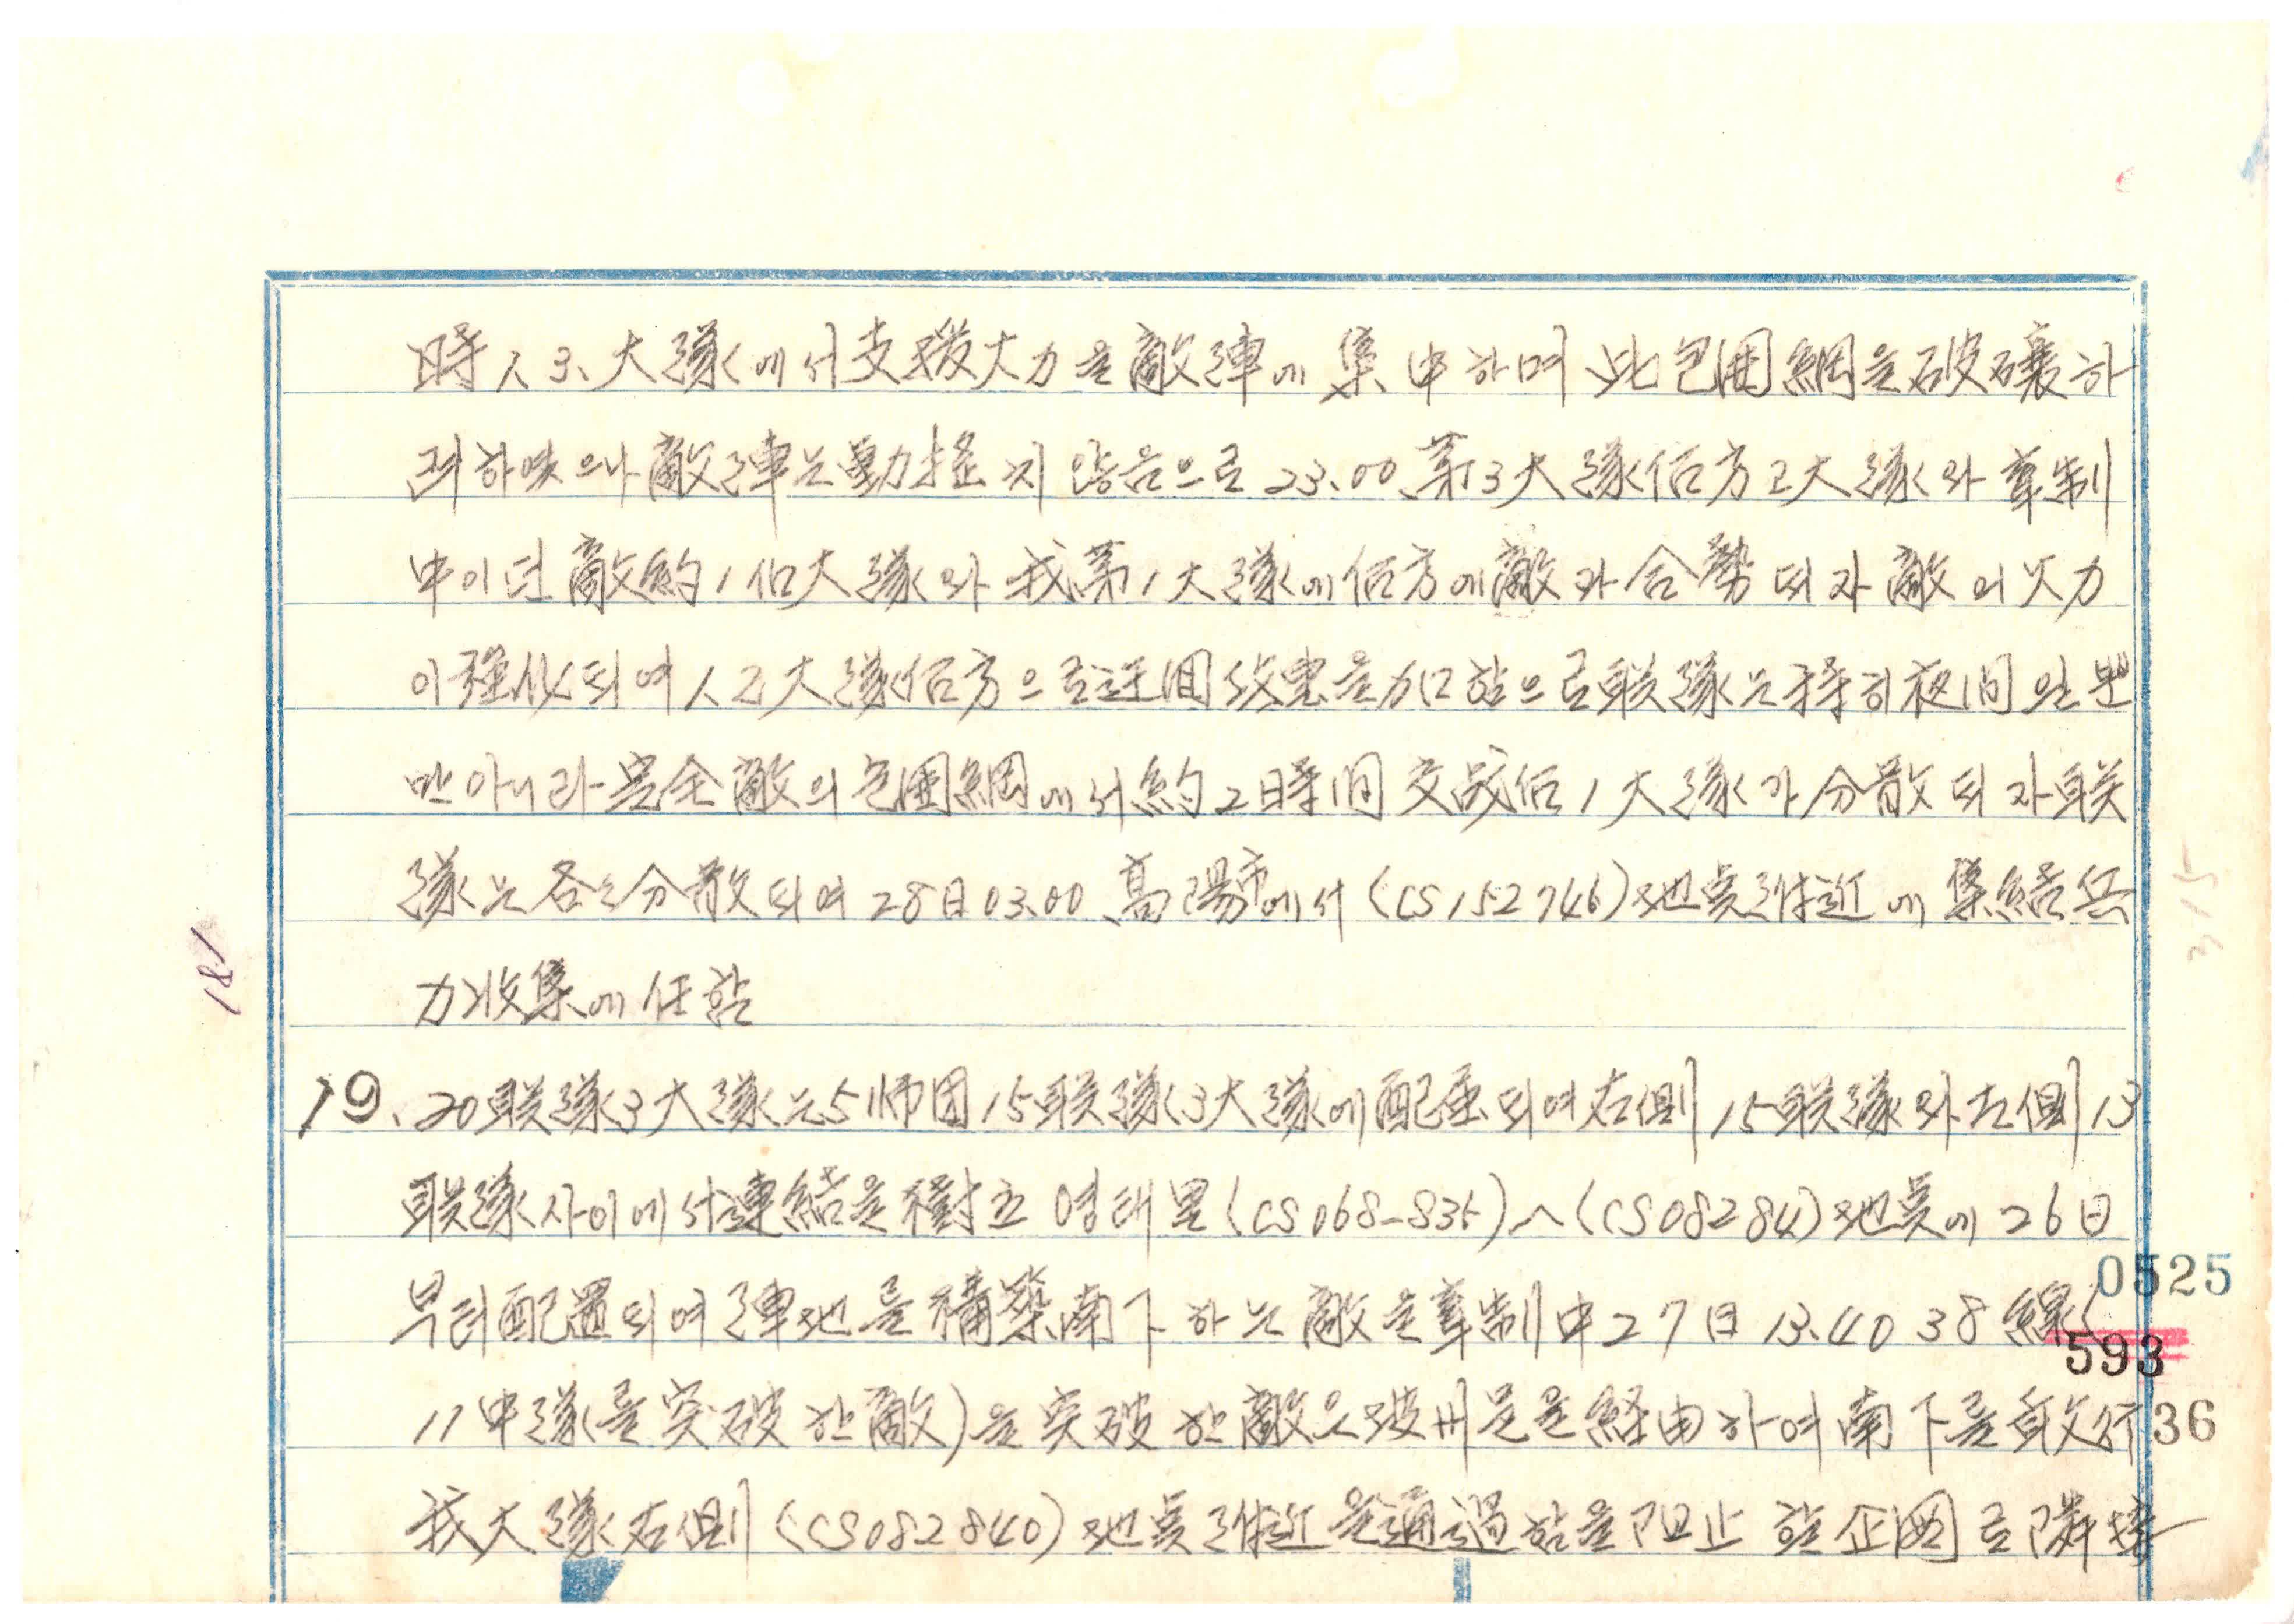 時 1 3、大隊에서 支援火力을 敵陣에 集中하며 此包囲網을 破壞하
려하였으나 敵陣는 動搖치 않음으로 23.00、第3大隊后方 2大隊와 牽制
中이던 敵約 1個大隊와 我第1大隊에 后方에 敵과 合勢되자 敵의 火力
이 強化되여 1 2大隊后方으로 逆面攻擊을 加함으로 联隊는 特히 夜間일뿐
만아니라 完全 敵의 包囲網에서 約 2時間 交戰后 1大隊가 分散되자 联
隊는 各々分散되여 28日 03.00、高陽市에서 (CS 152746) 地点附近에 集結兵
力收集에 任함
19. 20联隊 3大隊는 5师団 15联隊 3大隊에 配属되여 右側 15联隊와 左側 13
联隊사이에서 連結을 樹立 영태里 (CS 068-835)~(CS 08284) 地点에 26日
부터 配置되여 陣地를 構築 南下하는 敵을 牽制中 27日 13.40 38線
11中隊(를 突破한 敵)을 突破한 敵은 坡州里을 経由하여 南下를 敢行
我大隊右側 (CS 082840) 地点附近을 通過함을 阻止할 企図로 隣接
181
315
0525
593
36